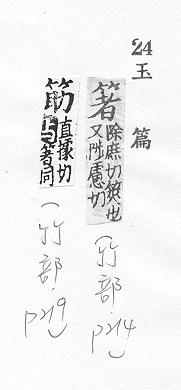 24 玉篇
箸 除庶切筴也又陟慮切
(竹部·P214)
筯 直據切與箸同
(竹部·P219)